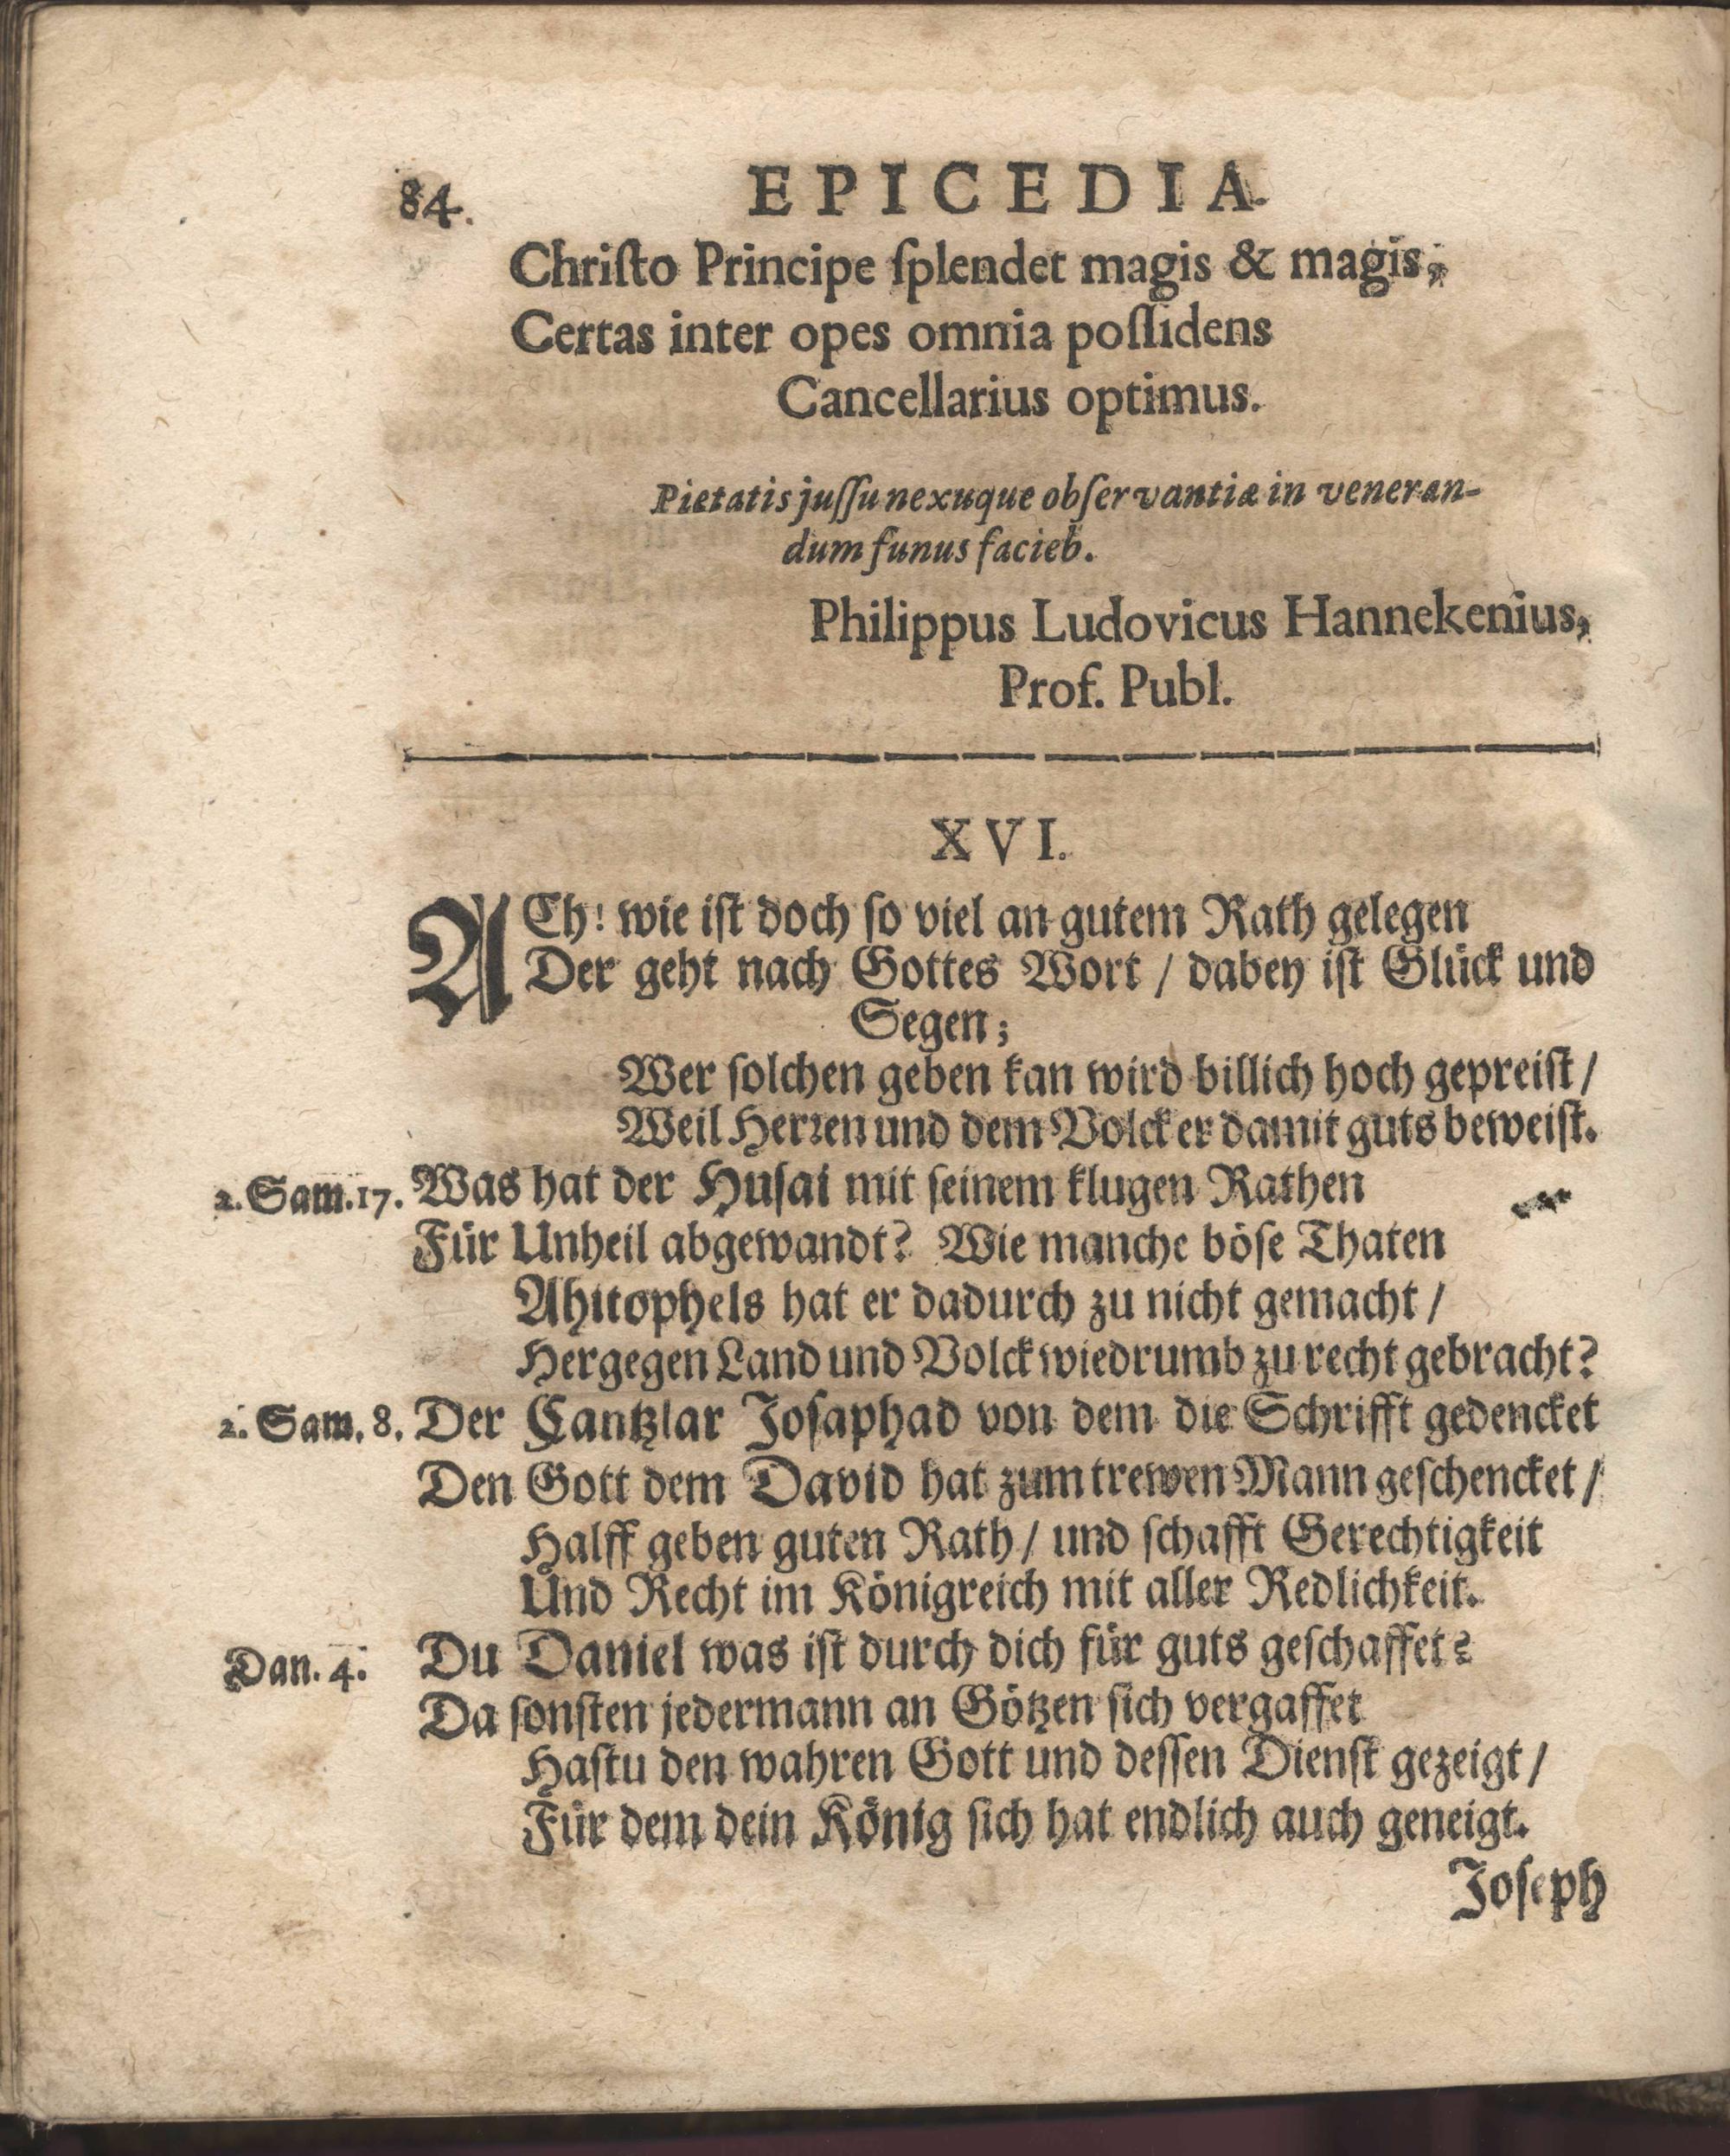 84. EPICEDIA.
Chriſto Principe ſplendet magis & magis,
Certas inter opes omnia poſſidens
Cancellarius optimus.
Pietatis juſſu nexuque obſervantiæ in veneran-
dum funus facieb.
Philippus Ludovicus Hannekenius,
Prof. Publ.
XVI.
ACh! wie iſt doch ſo viel an gutem Rath gelegen
Der geht nach Gottes Wort / dabey iſt Glück und
Segen;
Wer ſolchen geben kan wird billich hoch gepreiſt /
Weil Herꝛen und dem Volck er damit guts beweiſt.
2. Sam. 17. Was hat der Huſai mit ſeinem klugen Rathen
Für Unheil abgewandt? Wie manche böſe Thaten
Ahitophels hat er dadurch zu nicht gemacht /
Hergegen Land und Volck wiedrumb zu recht gebracht?
2. Sam. 8. Der Cantzlar Joſaphad von dem die Schrifft gedencket
Den Gott dem David hat zum trewen Mann geſchencket /
Halff geben guten Rath / und ſchafft Gerechtigkeit
Und Recht im Königreich mit aller Redlichkeit.
Dan. 4. Du Daniel was iſt durch dich für guts geſchaffet?
Da ſonſten jedermann an Götzen ſich vergaffet
Haſtu den wahren Gott und deſſen Dienſt gezeigt /
Für dem dein König ſich hat endlich auch geneigt.
Joſeph